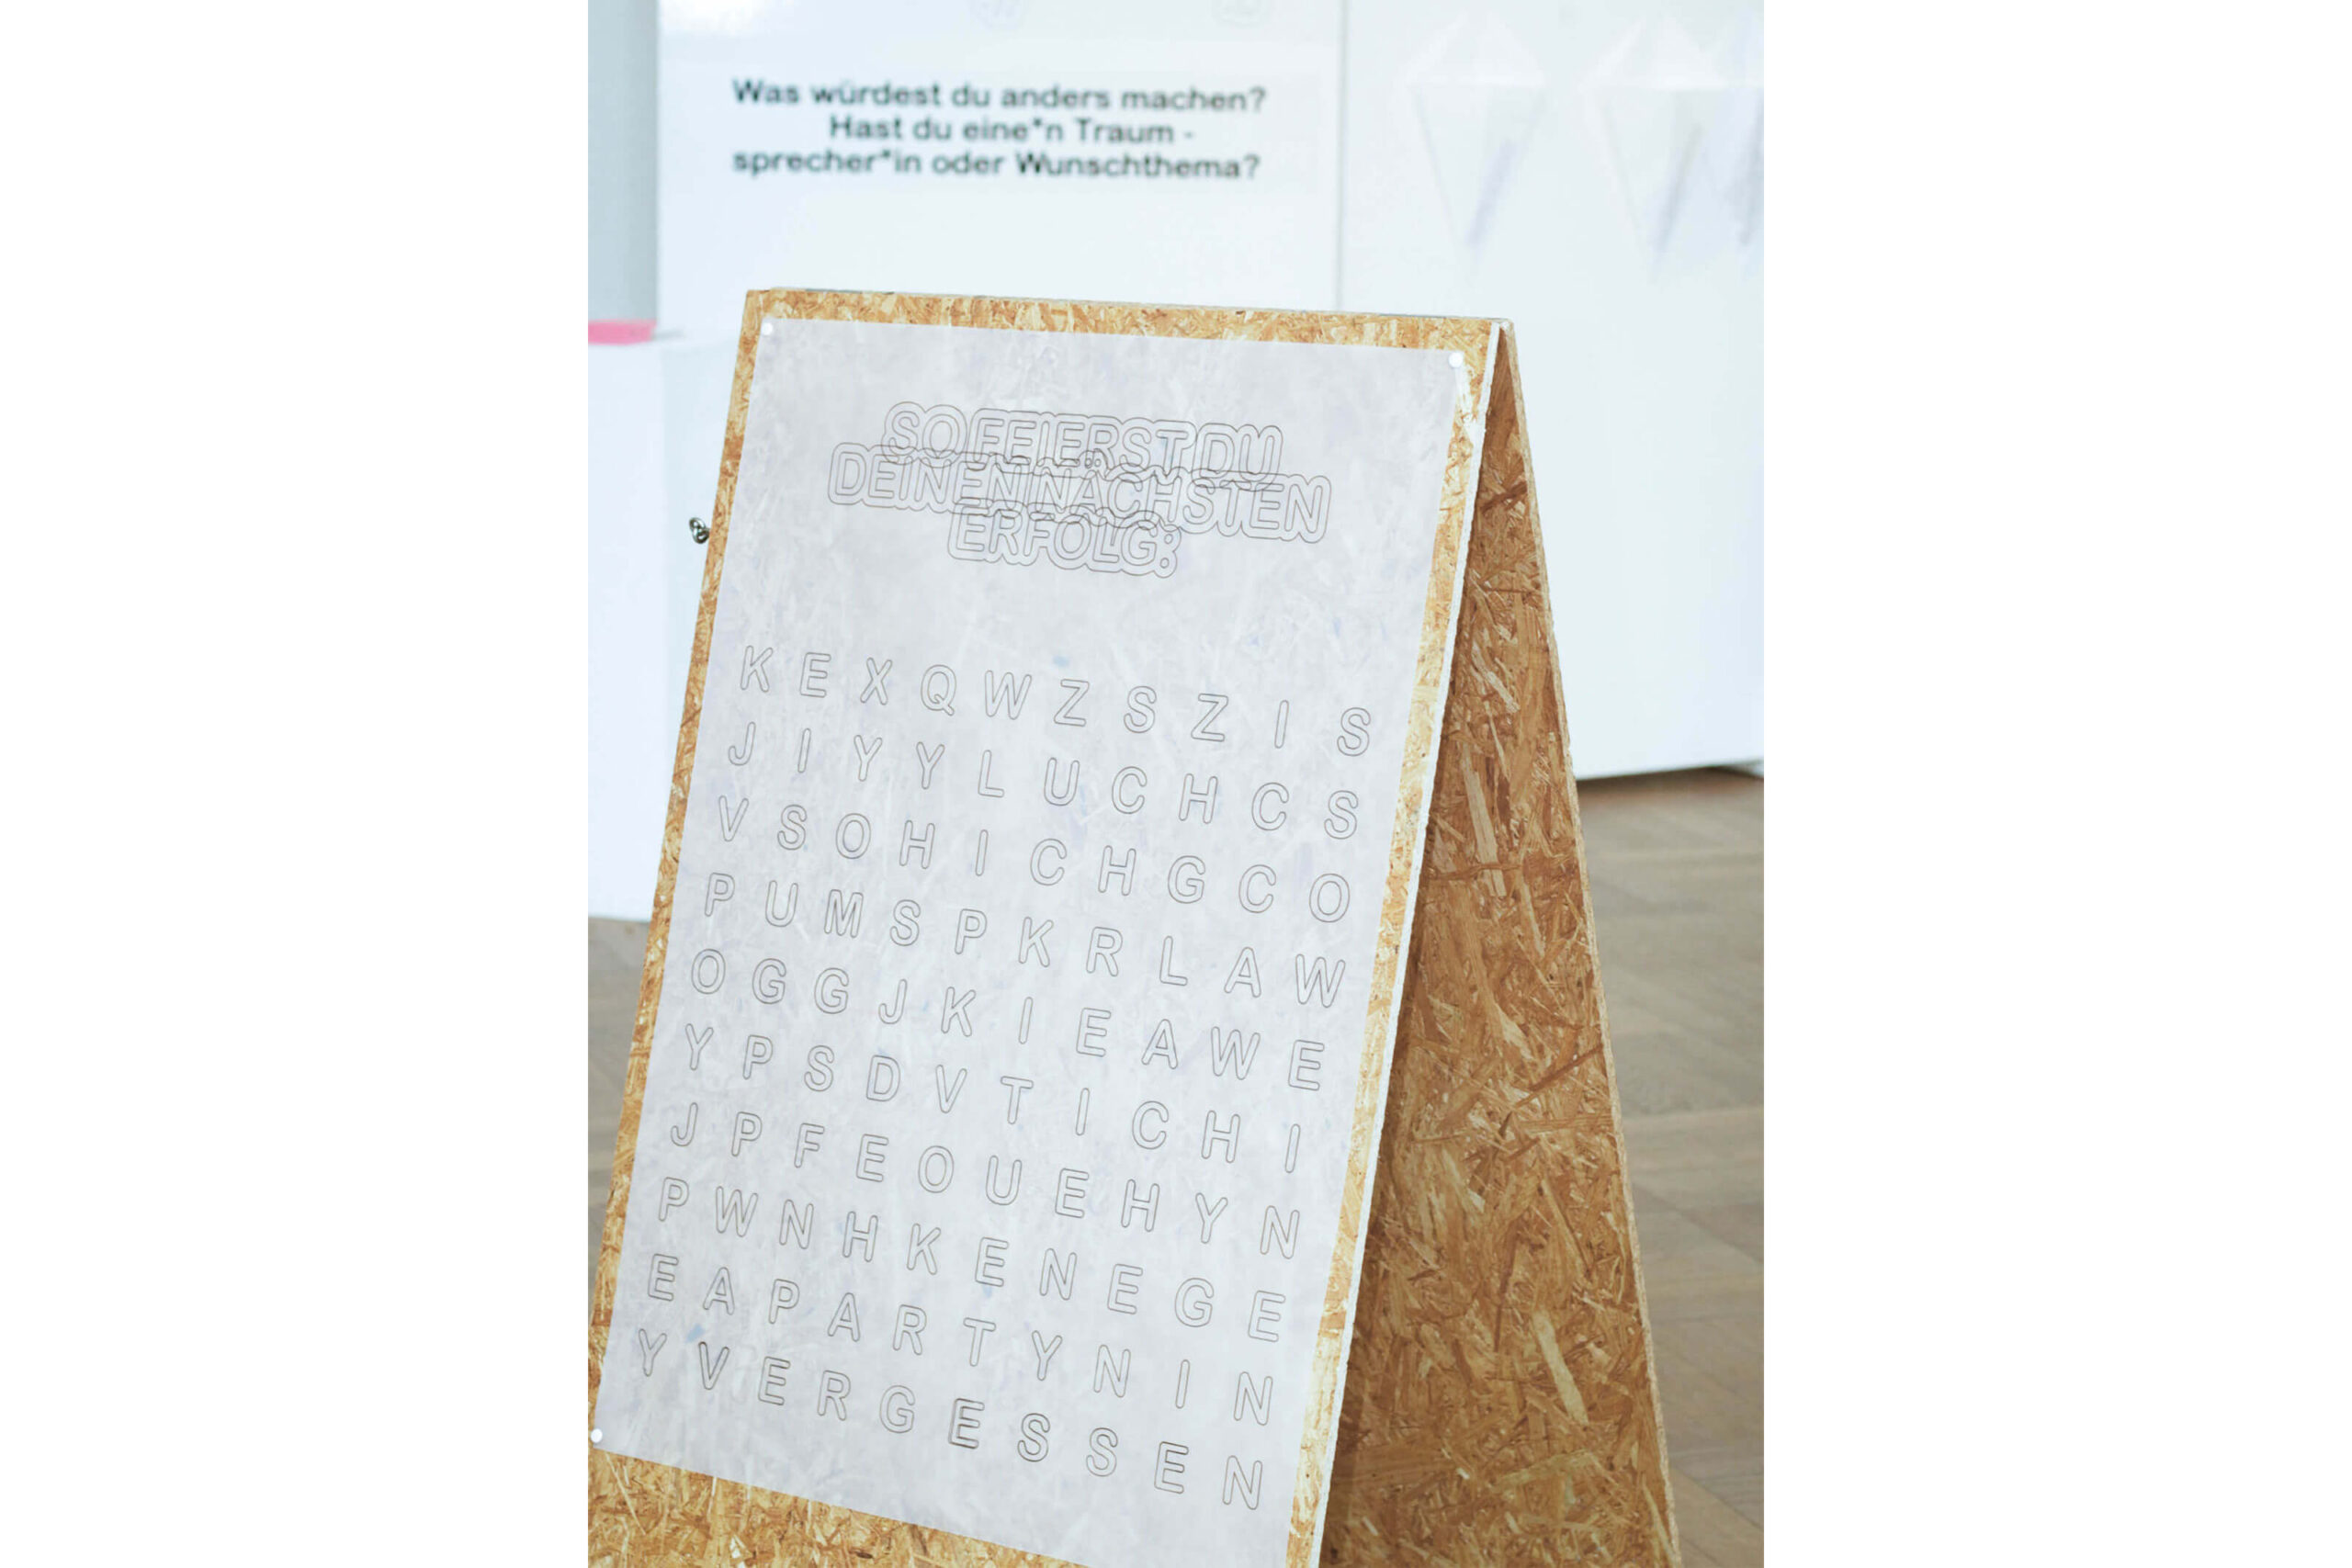 Was würdest du anders machen?
Hast du eine*n Traum -
sprecher*in oder Wunschthema?
SO FEIERST DU
DEINEN NÄCHSTEN
ERFOLG:
K E X Q W Z S Z I S
J I Y Y L U C H C S
V S O H I C H G C O
P U M S P K R L A W
O G G J K I E A W E
Y P S D V T I C H I
J P F E O U E H Y N
P W N H K E N E G E
E A P A R T Y N I N
Y V E R G E S S E N